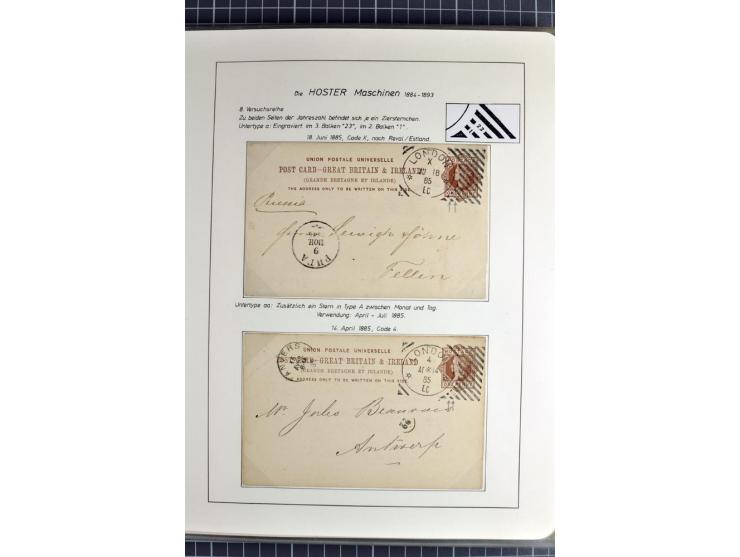 Die HOSTER Maschinen 1884-1893
8. Versuchsreihe
Zu beiden Seiten der Jahreszahl befindet sich je ein Ziersternchen.
Untertype a: Eingraviert im 3. Balken "23", im 2. Balken "1".
18. Juni 1885, Code X, nach Reval/Estland.
23
1
UNION POSTALE UNIVERSELLE
POST CARD-GREAT BRITAIN & IRELAND
(GRANDE BRETAGNE ET IRLANDE)
THE ADDRESS ONLY TO BE WRITTEN ON THIS SIDE.
LONDON
X
18
85
EC
Russia
Fellin
РИГА
9
Untertype aa: Zusätzlich ein Stern in Type A zwischen Monat und Tag.
Verwendung: April - Juli 1885.
14. April 1885, Code 4.
UNION POSTALE UNIVERSELLE
CARD-GREAT BRITAIN & IRELAND
(GRANDE BRETAGNE ET IRLANDE)
THE ADDRESS ONLY TO BE WRITTEN ON THIS SIDE.
ANVERS
LONDON
4
14
85
EC
Mr. Jules Beauvais
Antwerp